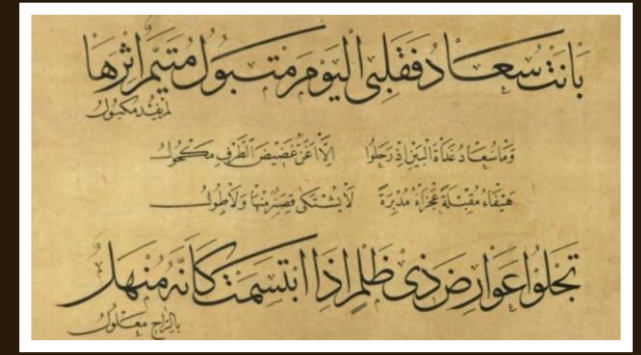 بَانَتْ سُعَادُ فَقَلْبِي الْيَوْمَ مَتْبُولُ مُتَيَّمٌ اِثْرَهَا
لَمْ يُفْدَ مَكْبُولُ
وَمَا سُعَادُ غَدَاةَ الْبَيْنِ اِذْ رَحَلُوا اِلَّا اَغَنُّ غَضِيضُ الطَّرْفِ مَكْحُولُ
هَيْفَاءُ مُقْبِلَةً عَجْزَاءُ مُدْبِرَةً لَا يُشْتَكٰى قِصَرٌ مِنْهَا وَلَا طُولُ
تَجْلُوا عَوَارِضَ ذِى ظَلْمٍ اِذَا ابْتَسَمَتْ كَاَنَّهُ مُنْهَلٌ
بِالرَّاحِ مَعْلُولُ